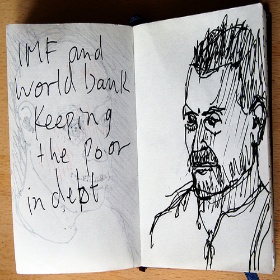 IMF and
world bank
keeping
the poor
in dept